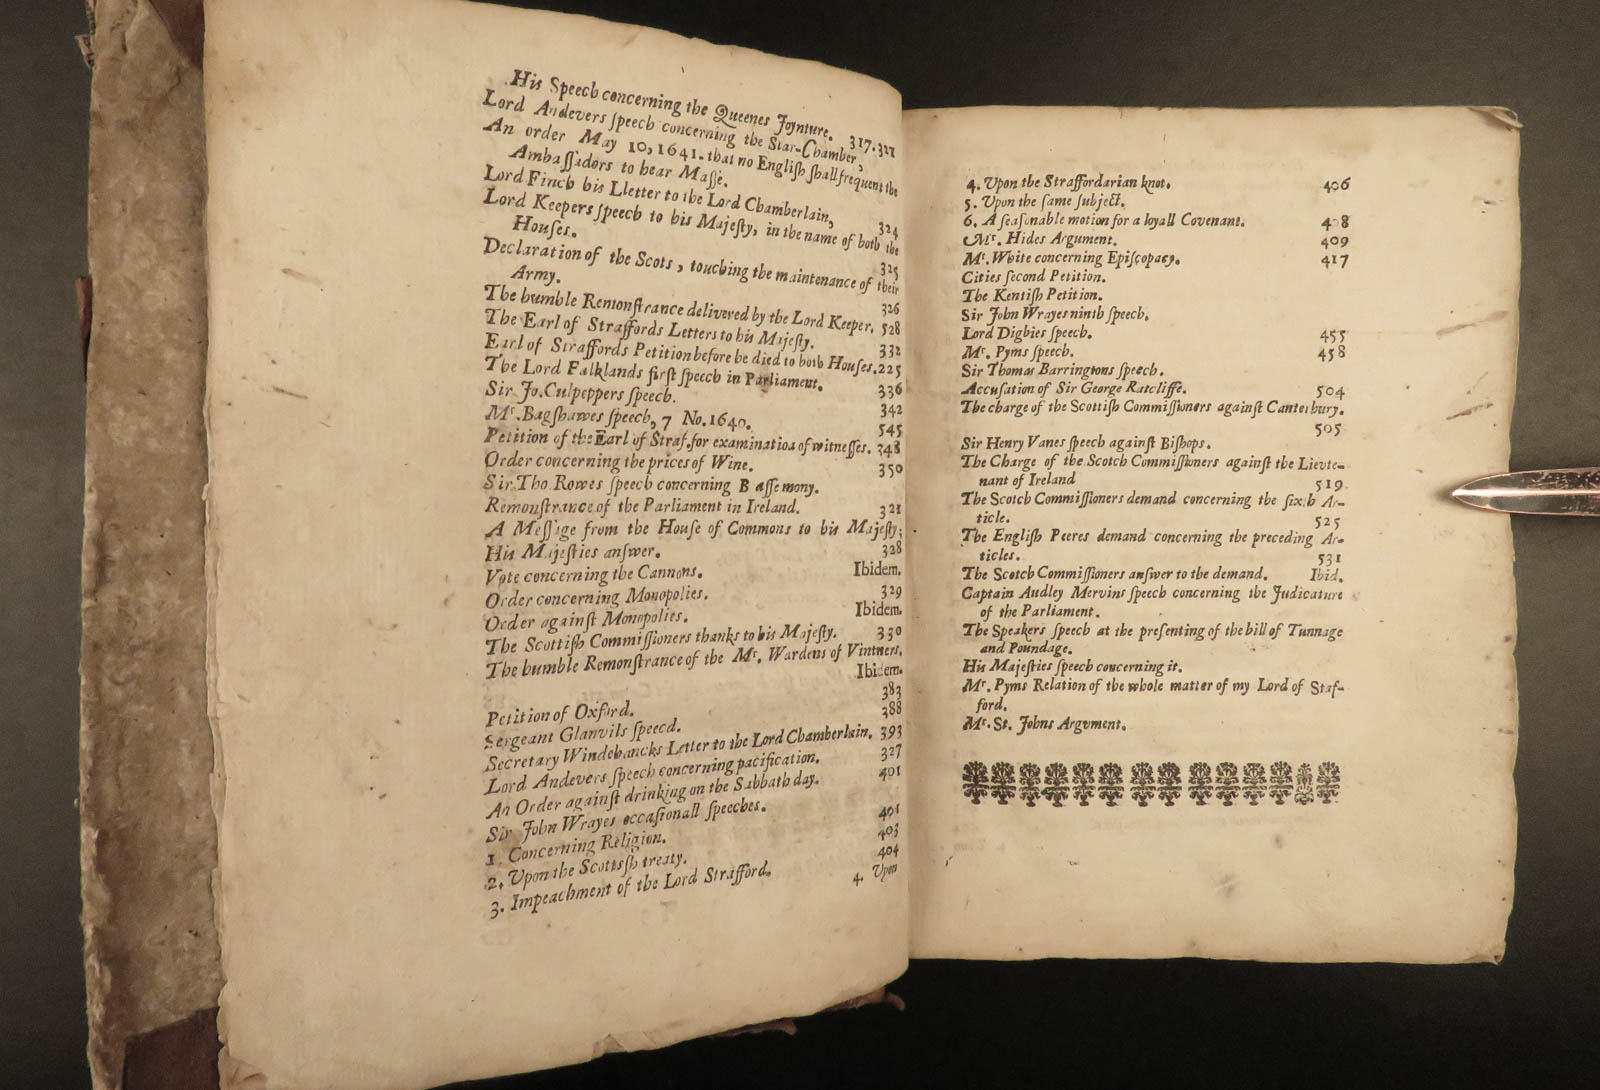 His Speech concerning the Queenes Joynture. 317.321
Lord Andevers speech concerning the Star-Chamber,
An order May 10, 1641. that no English shall frequent the
Ambassadors to hear Masse.
Lord Finch his Lletter to the Lord Chamberlain, 324
Lord Keepers speech to his Majesty, in the name of both the
Houses. 325
Declaration of the Scots, touching the maintenance of their
Army. 326
The humble Remonstrance delivered by the Lord Keeper. 528
The Earl of Straffords Letters to his Majesty. 332
Earl of Straffords Petition before he died to both Houses. 225
The Lord Falklands first speech in Parliament. 336
Sir Jo. Culpeppers speech. 342
Mr. Bagshawes speech, 7 No. 1640. 545
Petition of the Earl of Straf. for examination of witnesses. 348
Order concerning the prices of Wine. 350
Sir Tho. Rowes speech concerning B asse mony.
Remonstrance of the Parliament in Ireland. 321
A Message from the House of Commons to his Majesty;
His Majesties answer. 328
Vote concerning the Cannons. Ibidem.
Order concerning Monopolies. 329
Order against Monopolies. Ibidem.
The Scottish Commissioners thanks to his Majesty. 330
The humble Remonstrance of the Mr. Wardens of Vintners.
Ibidem.
Petition of Oxford. 383
Sergeant Glanvils speecd. 388
Secretary Windebancks Letter to the Lord Chamberlain. 393
Lord Andevers speech concerning pacification. 327
An Order against drinking on the Sabbath day. 401
Sir John Wrayes occasionall speeches.
1. Concerning Religion. 401
2. Upon the Scottssh treaty. 403
3. Impeachment of the Lord Strafford. 404
4. Upon
4. Upon the Straffordarian knot. 406
5. Upon the same subject.
6. A seasonable motion for a loyall Covenant. 408
Mr. Hides Argument. 409
Mr. White concerning Episcopacy. 417
Cities second Petition.
The Kentish Petition.
Sir John Wrayes ninth speech.
Lord Digbies speech. 455
Mr. Pyms speech. 458
Sir Thomas Barringtons speech.
Accusation of Sir George Ratcliffe. 504
The charge of the Scottish Commissioners against Canterbury.
505
Sir Henry Vanes speech against Bishops.
The Charge of the Scotch Commissioners against the Lieute-
nant of Ireland 519
The Scotch Commissioners demand concerning the sixth Ar-
ticle. 525
The English Peeres demand concerning the preceding Ar-
ticles. 531
The Scotch Commissioners answer to the demand. Ibid.
Captain Audley Mervins speech concerning the Judicature
of the Parliament.
The Speakers speech at the presenting of the bill of Tunnage
and Poundage.
His Majesties speech concerning it.
Mr. Pyms Relation of the whole matter of my Lord of Staf-
ford.
Mr. St. Johns Argvment.